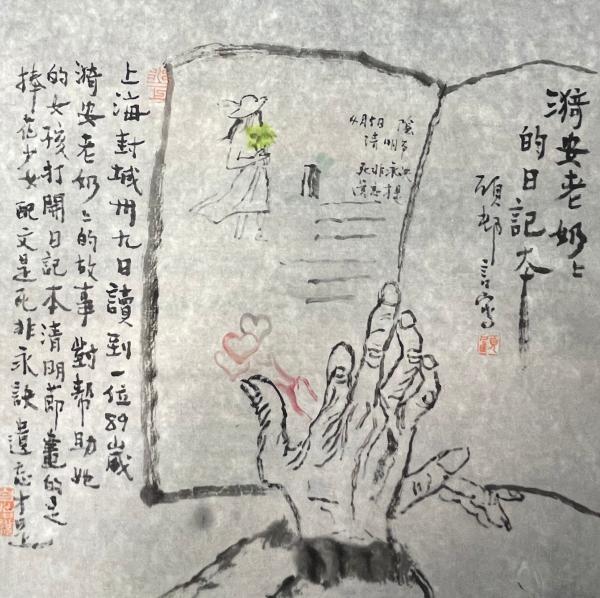 漪安老奶〻
的日記本
顾邨言寫
4月5日
清明
死非永
上海封城卅九日讀到一位89歲
漪安老奶〻的故事對幫助她
的女孩打開日記本清明節畫的是
捧花少女配文是死非永訣遺忘才是